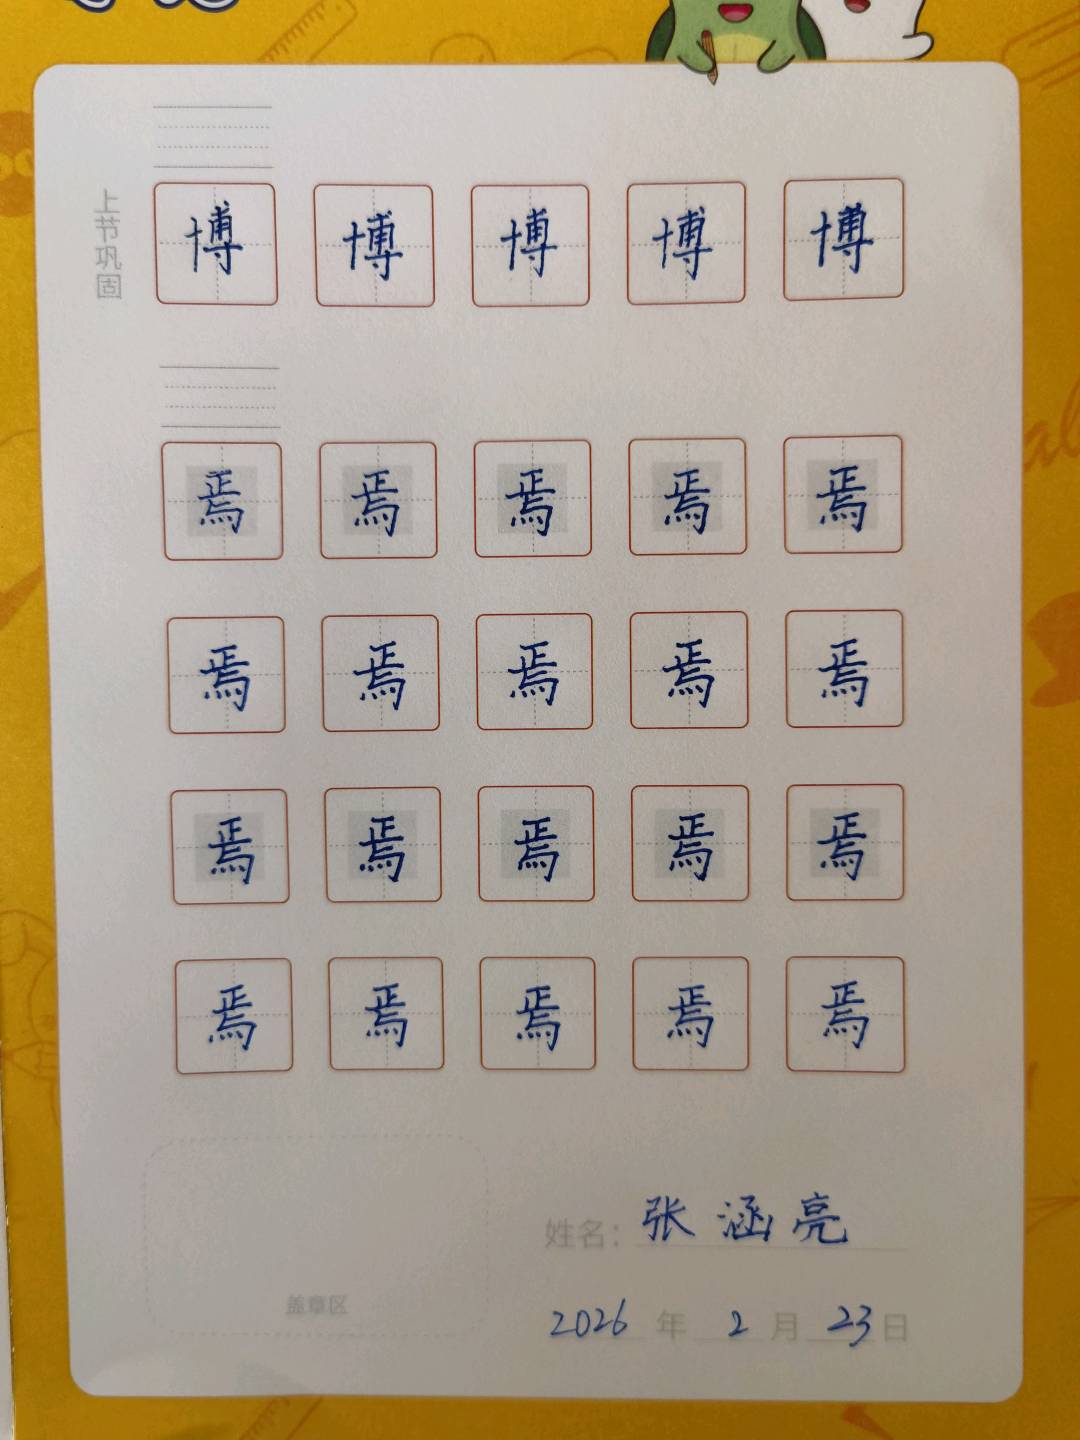 上节巩固
博 博 博 博 博
焉 焉 焉 焉 焉
焉 焉 焉 焉 焉
焉 焉 焉 焉 焉
焉 焉 焉 焉 焉
姓名: 张涵亮
盖章区
2026 年 2 月 23 日